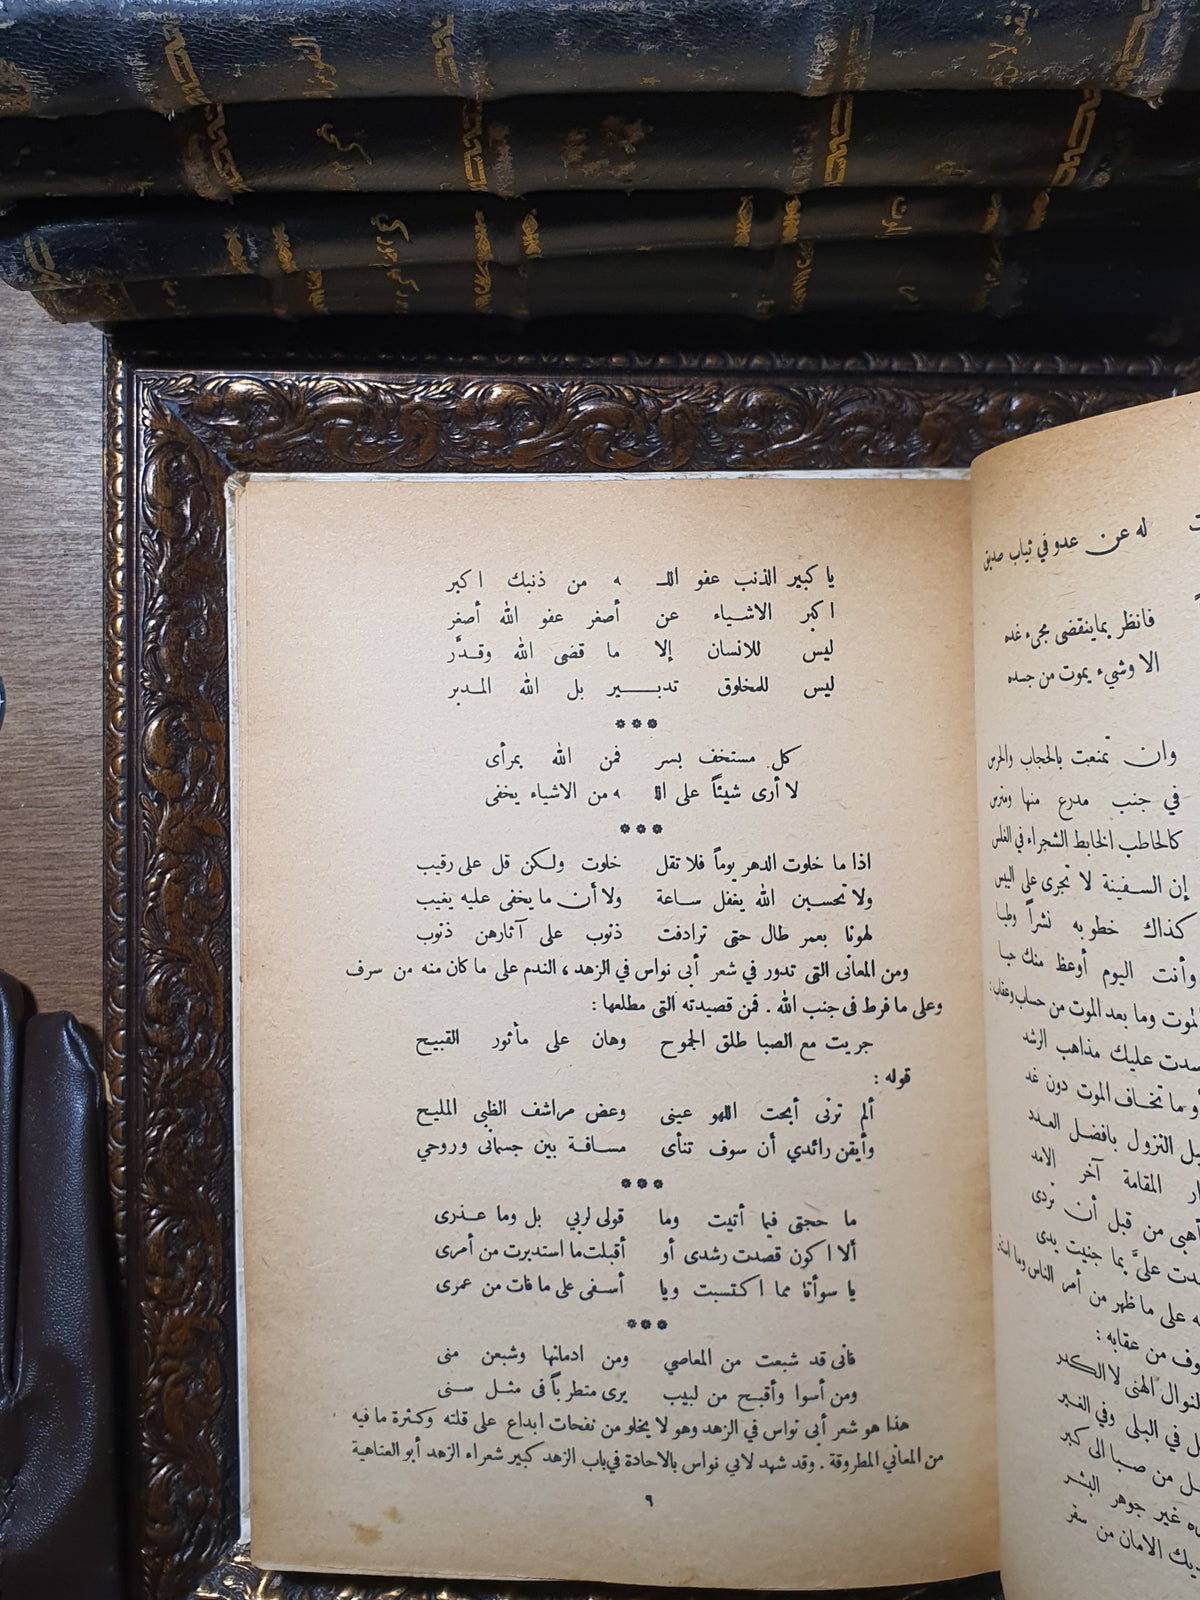 يا كبير الذنب عفو اللـ ـه من ذنبك اكبر
اكبر الاشياء عن أصغر عفو الله أصغر
ليس للانسان إلا ما قضى الله وقدَّر
ليس للمخلوق تدبير بل الله المدبر
***
كل مستخف بسر فمن الله بمرأى
لا أرى شيئاً على اللـ ـه من الاشياء يخفى
***
اذا ما خلوت الدهر يوماً فلا تقل خلوت ولكن قل على رقيب
ولا تحسبن الله يغفل ساعة ولا أن ما يخفى عليه يغيب
لهونا بعمر طال حتى ترادفت ذنوب على آثارهن ذنوب
ومن المعانى التى تدور في شعر أبى نواس في الزهد، الندم على ما كان منه من سرف
وعلى ما فرط فى جنب الله . فمن قصيدته التى مطلعها :
جريت مع الصبا طلق الجموح وهان على مأثور القبيح
قوله :
ألم ترنى أبحت اللهو عينى وعض مراشف الظبى المليح
وأيقن رائدي أن سوف تنأى مسافة بين جسمانى وروحي
***
ما حجتى فيما أتيت وما قولى لربي بل وما عذرى
ألا اكون قصدت رشدى أو أقبلت ما استدبرت من أمرى
يا سوأتا مما اكتسبت ويا أسفى على ما فات من عمرى
***
فانى قد شبعت من المعاصي ومن ادمانها وشبعن منى
ومن أسوا وأقبح من لبيب يرى متطرباً فى مثل سنى
هذا هو شعر أبى نواس في الزهد وهو لا يخلو من نفحات ابداع على قلته وكثرة ما فيه
من المعاني المطروقة . وقد شهد لابي نواس بالاجادة في باب الزهد كبير شعراء الزهد أبو العتاهية
٩
له عن عدو في ثياب صديق
فانظر بما ينقضى مجىء غده
الا وشيء يموت من جسده
وان تمنعت بالحجاب والحرس
في جنب مدرع منها ومترس
كالحاطب الخابط الشجراء في الغلس
إن السفينة لا تجرى على اليبس
كذاك خطوبه نشراً وطيا
وأنت اليوم أوعظ منك حيا
الموت وما بعد الموت من حساب وعقاب :
عليك مذاهب الرشد
تخاف الموت دون غد
النزول بافضل العدد
المقامة آخر الامد
من قبل أن تردى
علىَّ بما جنيت يدى
على ما ظهر من أمر الناس وما
من عقابه :
النوال الهنى لا الكدر
في البلى وفي الغير
من صبا الى كبر
غير جوهر البشر
الامان من سقر